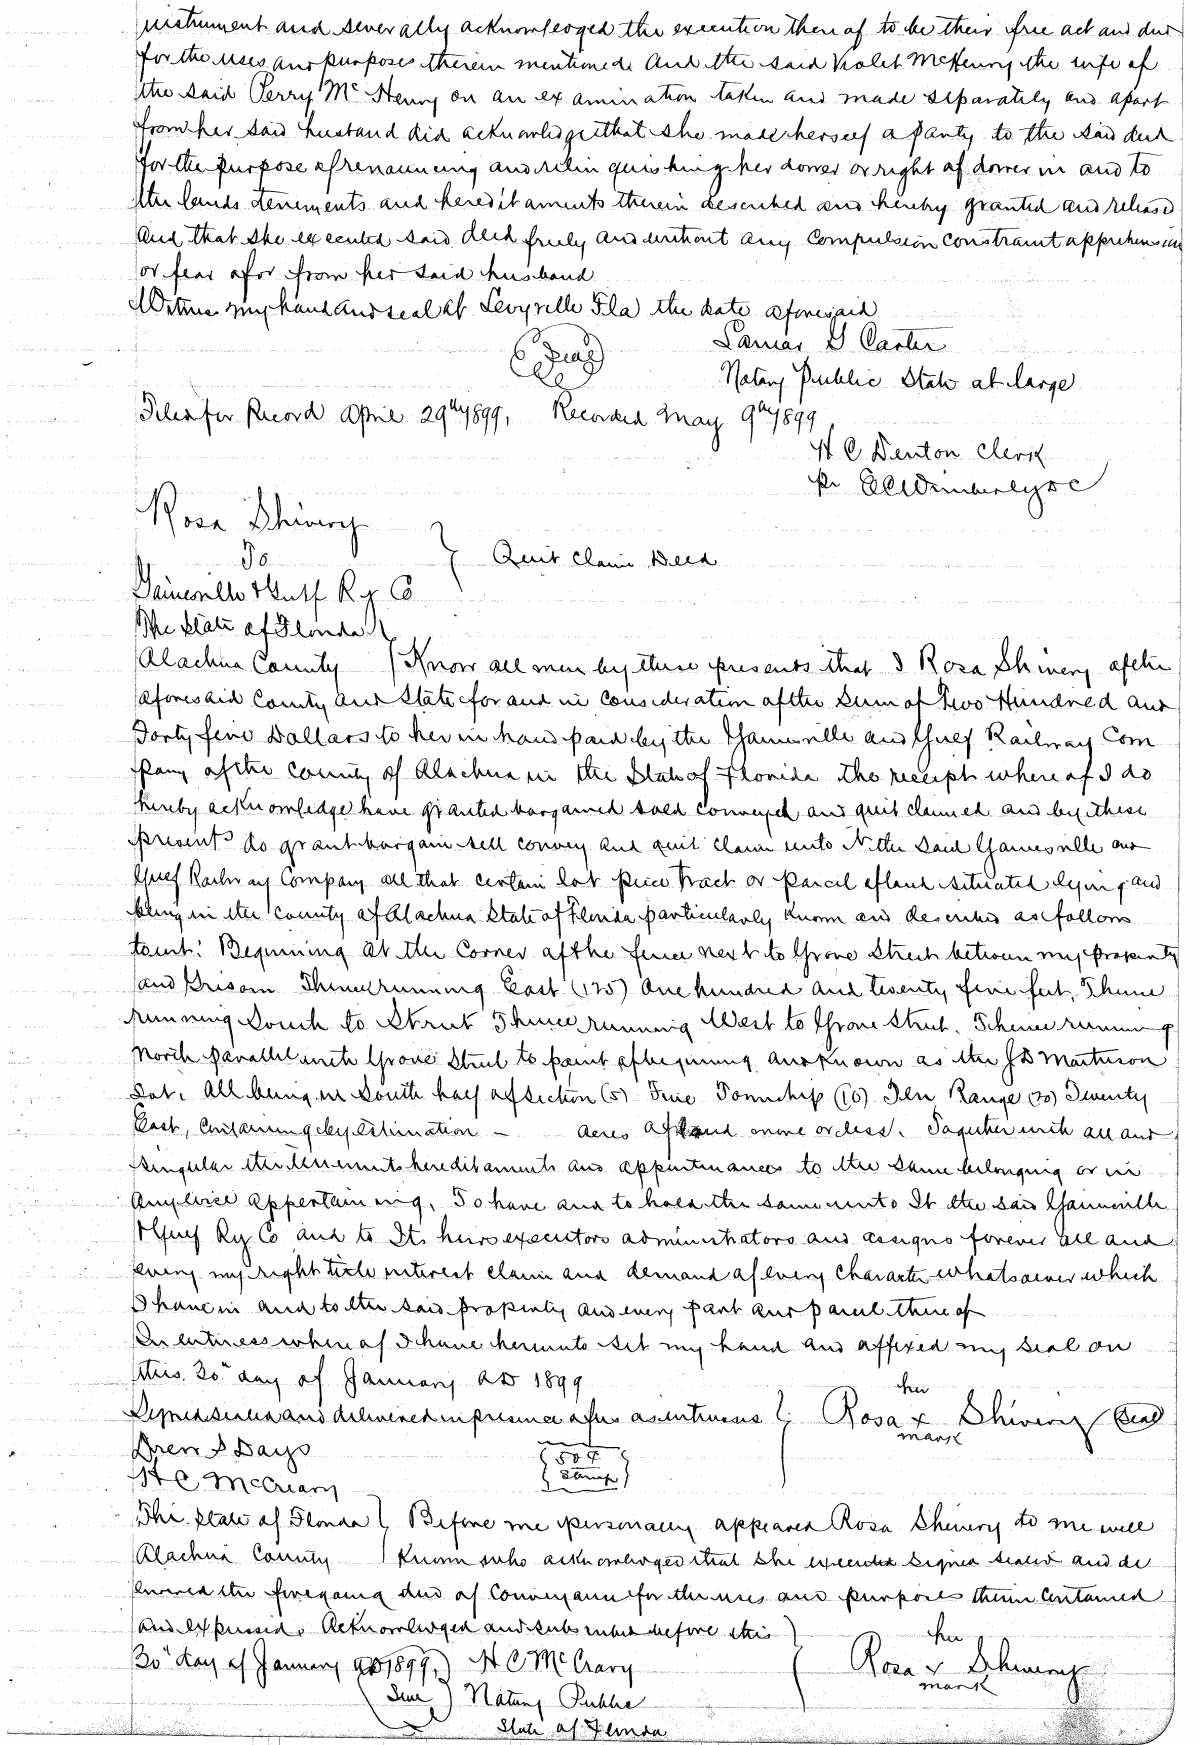 instrument and severally acknowledged the execution thereof to be their free act and deed
for the uses and purposes therein mentioned. And the said Violet McHenry the wife of
the said Perry McHenry on an examination taken and made separately and apart
from her said husband did acknowledge that she made herself a party to the said deed
for the purpose of renouncing and relinquishing her dower or right of dower in and to
the lands tenements and hereditaments therein described and hereby granted and released
And that she executed said deed freely and without any compulsion constraint apprehension
or fear of or from her said husband
Witness my hand and seal at Levyville Fla the date aforesaid
Lamar G Carter
(Seal)
Notary Public State at large
Filed for Record April 29th 1899, Recorded May 9th 1899
H C Denton Clerk
Pr E C Wimberly DC
Rosa Shivery
To } Quit Claim Deed
Gainesville & Gulf Ry Co
The State of Florida }
Alachua County } Know all men by these presents that I Rosa Shivery of the
aforesaid County and State for and in consideration of the sum of Two Hundred and
Forty five Dollars to her in hand paid by the Gainesville and Gulf Railway Com
pany of the County of Alachua in the State of Florida the receipt whereof I do
hereby acknowledge have granted bargained sold conveyed and quit claimed and by these
presents do grant bargain sell convey and quit claim unto the said Gainesville and
Gulf Railway Company all that certain lot piece tract or parcel of land situated lying and
being in the County of Alachua State of Florida particularly known and described as follows
towit: Beginning at the Corner of the fence next to Grove Street between my property
and Grisom Thence running East (125) One hundred and twenty five feet. Thence
running South to Street Thence running West to Grove Street. Thence running
North parallel with Grove Street to point of begining and known as the J D Matheson
Lot. All being in South half of Section (5) Five Township (10) Ten Range (20) Twenty
East, Containing by Estimation — acres of land more or less. Together with all and
singular the tenements hereditaments and appurtenances to the same belonging or in
anywise appertaining, To have and to hold the same unto It the said Gainesville
& Gulf Ry Co and to Its heirs executors administrators and assigns forever all and
every my right title interest claim and demand of every Character whatsoever which
I have in and to the said property and every part and parcel thereof
In witness whereof I have hereunto set my hand and affixed my seal on
this 30" day of January AD 1899
her
Signed sealed and delivered in presence of us as witness } Rosa x Shivery (Seal)
mark
Drew S Days (50¢
H C McCreary stamp)
The State of Florida } Before me personally appeared Rosa Shivery to me well
Alachua County } known who acknowledged that she executed signed sealed and de
livered the foregoing deed of Conveyance for the uses and purposes therein contained
and expressed. Acknowledged and subscribed before this }
her
30" day of January AD 1899. } H C McCrary } Rosa x Shivery
mark
(Seal) Notary Public
State of Florida